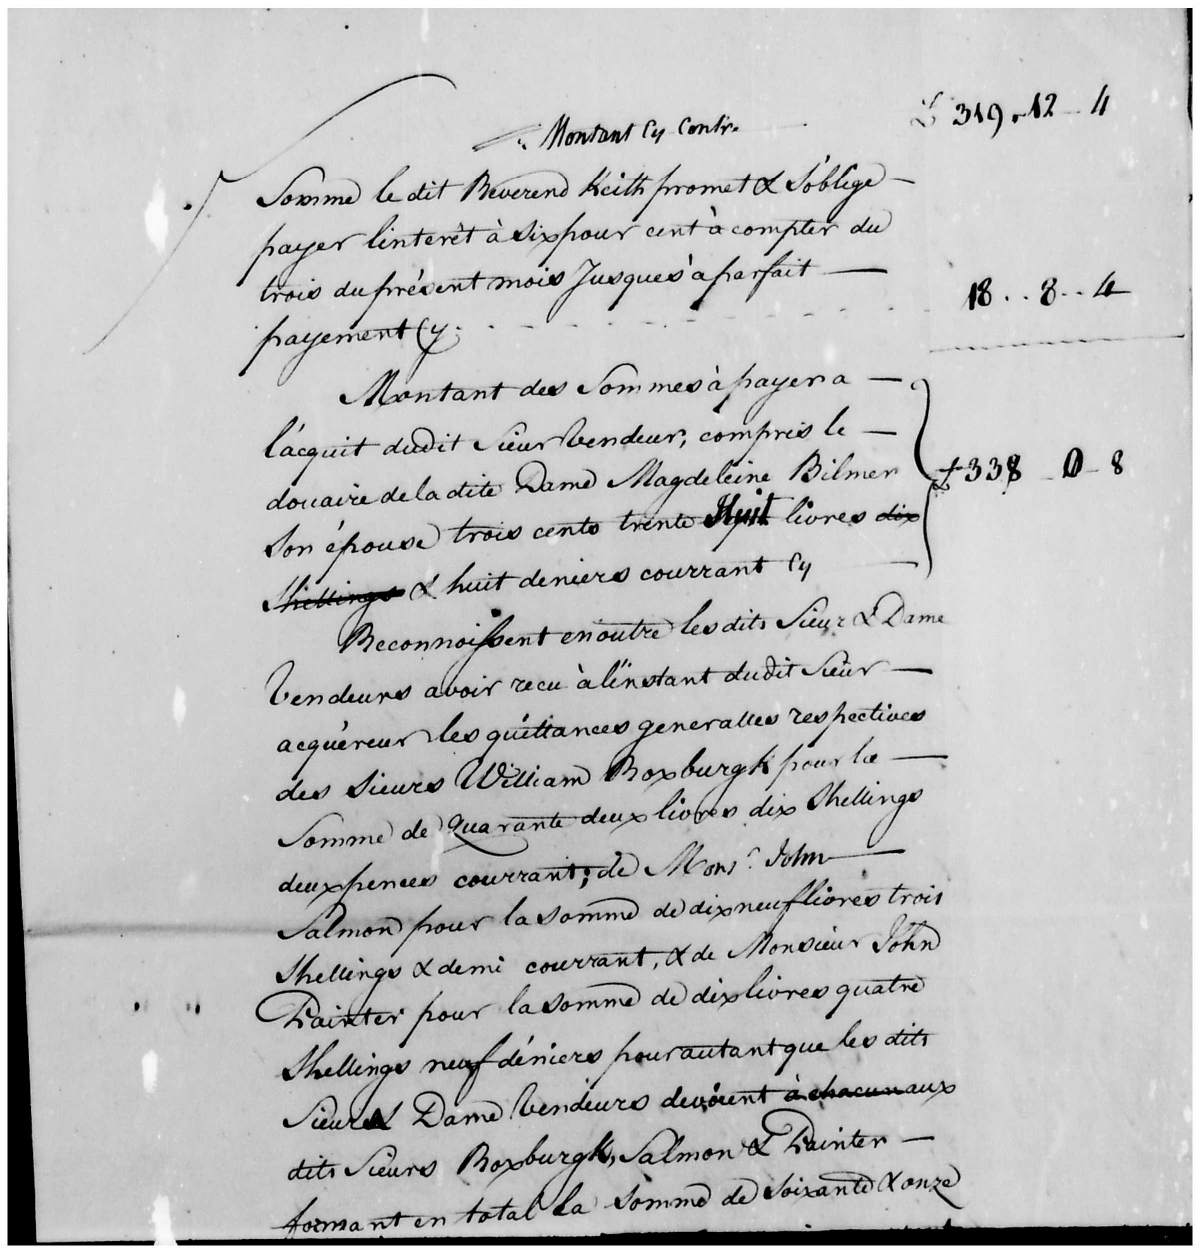 Montant Cy Contr. £ 319 " 12 - 4
Somme le dit Reverend Keith promet & s'oblige
payer l'interêt à six pour cent à compter du
trois du présent mois Jusques à parfait
payement Cy. 18 .. 8 .. 4
Montant des Sommes à payer a
l'acquit dudit Sieur Vendeur, compris le
douaire de la dite Dame Magdeleine Bilmer £ 338 - 0 - 8
son épouse trois cents trente Huit livres dix
Shellings & huit deniers courrant Cy
Reconnoissent en outre les dits Sieur & Dame
Vendeurs avoir recu à l'instant dudit Sieur
acquéreur les quittances generalles respectives
des Sieurs William Roxburgk pour la
Somme de Quarante deux livres dix Shellings
deux pences courrant; de Monsr. John
Salmon pour la somme de dix neuf livres trois
Shellings & demi courrant, & de Monsieur John
Painter pour la somme de dix livres quatre
Shellings neuf déniers pour autant que les dits
Sieur & Dame Vendeurs devoient à chacun aux
dits Sieurs Roxburgk, Salmon & Painter
formant en total la somme de soixante & onze